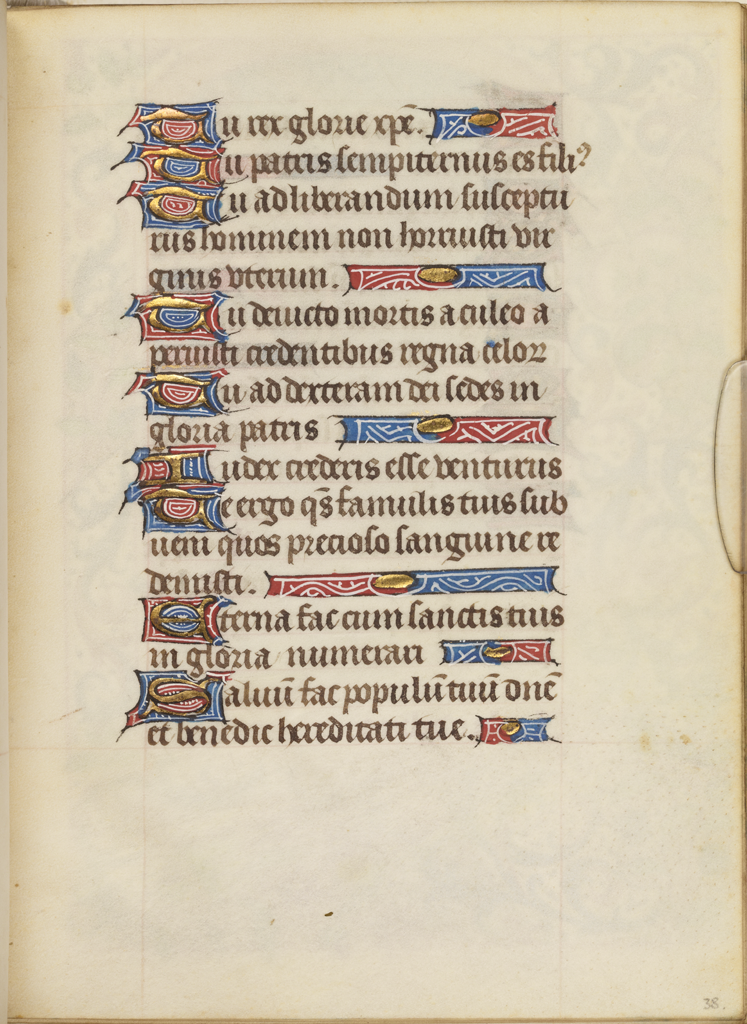 Tu rex glorie xp̄e.
Tu patris sempiternus es filiꝰ
Tu ad liberandum susceptu
rus hominem non horruisti vir
ginis vterum.
Tu deuicto mortis aculeo a
peruisti credentibus regna celoꝝ
Tu ad dexteram dei sedes in
gloria patris
Iudex crederis esse venturus
Te ergo qs̄ famulis tuis sub
ueni quos precioso sanguine re
demisti.
Eterna fac cum sanctis tuis
in gloria numerari
Saluū fac populū tuū dn̄e
et benedic hereditati tue.
38.